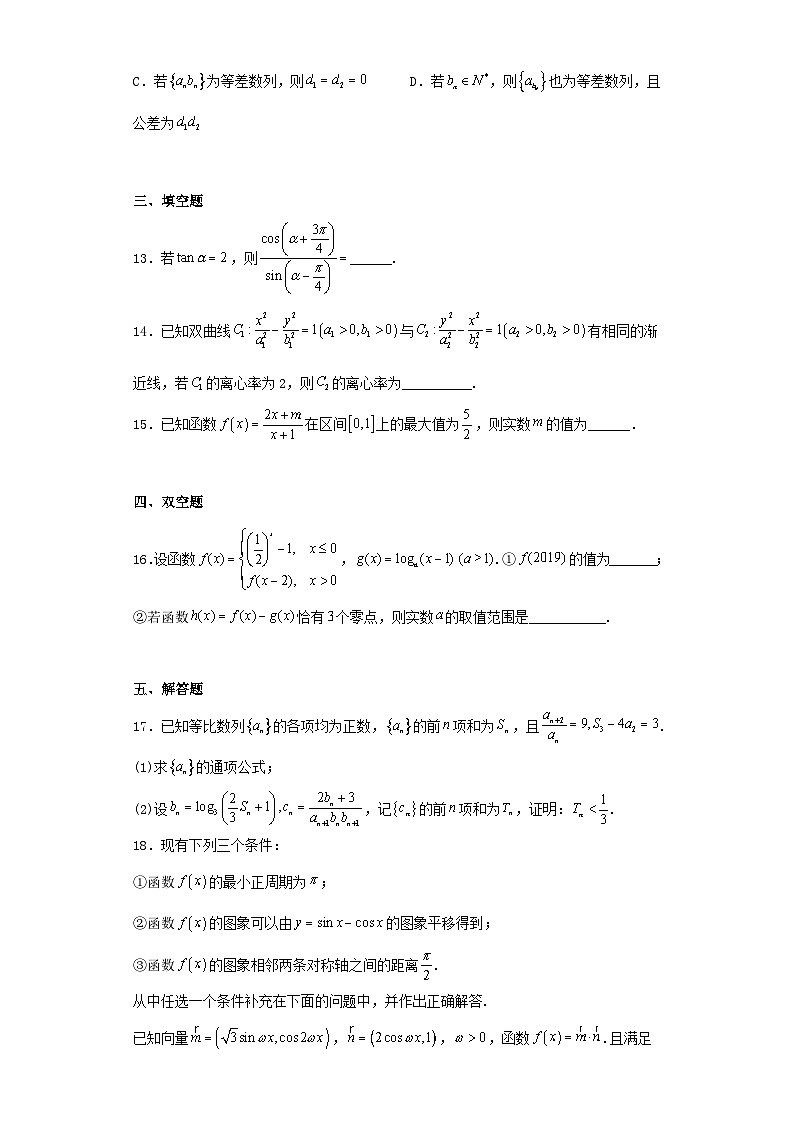 C．若{aₙbₙ}为等差数列，则d₁ = d₂ = 0　　D．若bₙ ∈ N*，则{a_{bₙ}}也为等差数列，且
公差为d₁d₂
三、填空题
13．若tan α = 2，则cos(α + 3π/4) / sin(α − π/4) = ______.
14．已知双曲线C₁ : x²/a₁² − y²/b₁² = 1(a₁ > 0, b₁ > 0)与C₂ : y²/a₂² − x²/b₂² = 1(a₂ > 0, b₂ > 0)有相同的渐
近线，若C₁的离心率为2，则C₂的离心率为__________.
15．已知函数f(x) = (2x + m)/(x + 1)在区间[0,1]上的最大值为5/2，则实数m的值为______．
四、双空题
16.设函数f(x) = { (1/2)ˣ − 1, x ≤ 0; f(x − 2), x > 0 ，g(x) = logₐ(x − 1) (a > 1).①f(2019)的值为_______；
②若函数h(x) = f(x) − g(x)恰有3个零点，则实数a的取值范围是___________.
五、解答题
17．已知等比数列{aₙ}的各项均为正数，{aₙ}的前n项和为Sₙ，且aₙ₊₂/aₙ = 9, S₃ − 4a₂ = 3.
(1)求{aₙ}的通项公式；
(2)设bₙ = log₃(2/3 Sₙ + 1), cₙ = (2bₙ + 3)/(aₙ₊₁bₙbₙ₊₁)，记{cₙ}的前n项和为Tₙ，证明：Tₙ < 1/3.
18．现有下列三个条件：
①函数f(x)的最小正周期为π；
②函数f(x)的图象可以由y = sin x − cos x的图象平移得到；
③函数f(x)的图象相邻两条对称轴之间的距离π/2.
从中任选一个条件补充在下面的问题中，并作出正确解答．
已知向量m = (√3 sin ωx, cos 2ωx)，n = (2cos ωx, 1)，ω > 0，函数f(x) = m·n.且满足